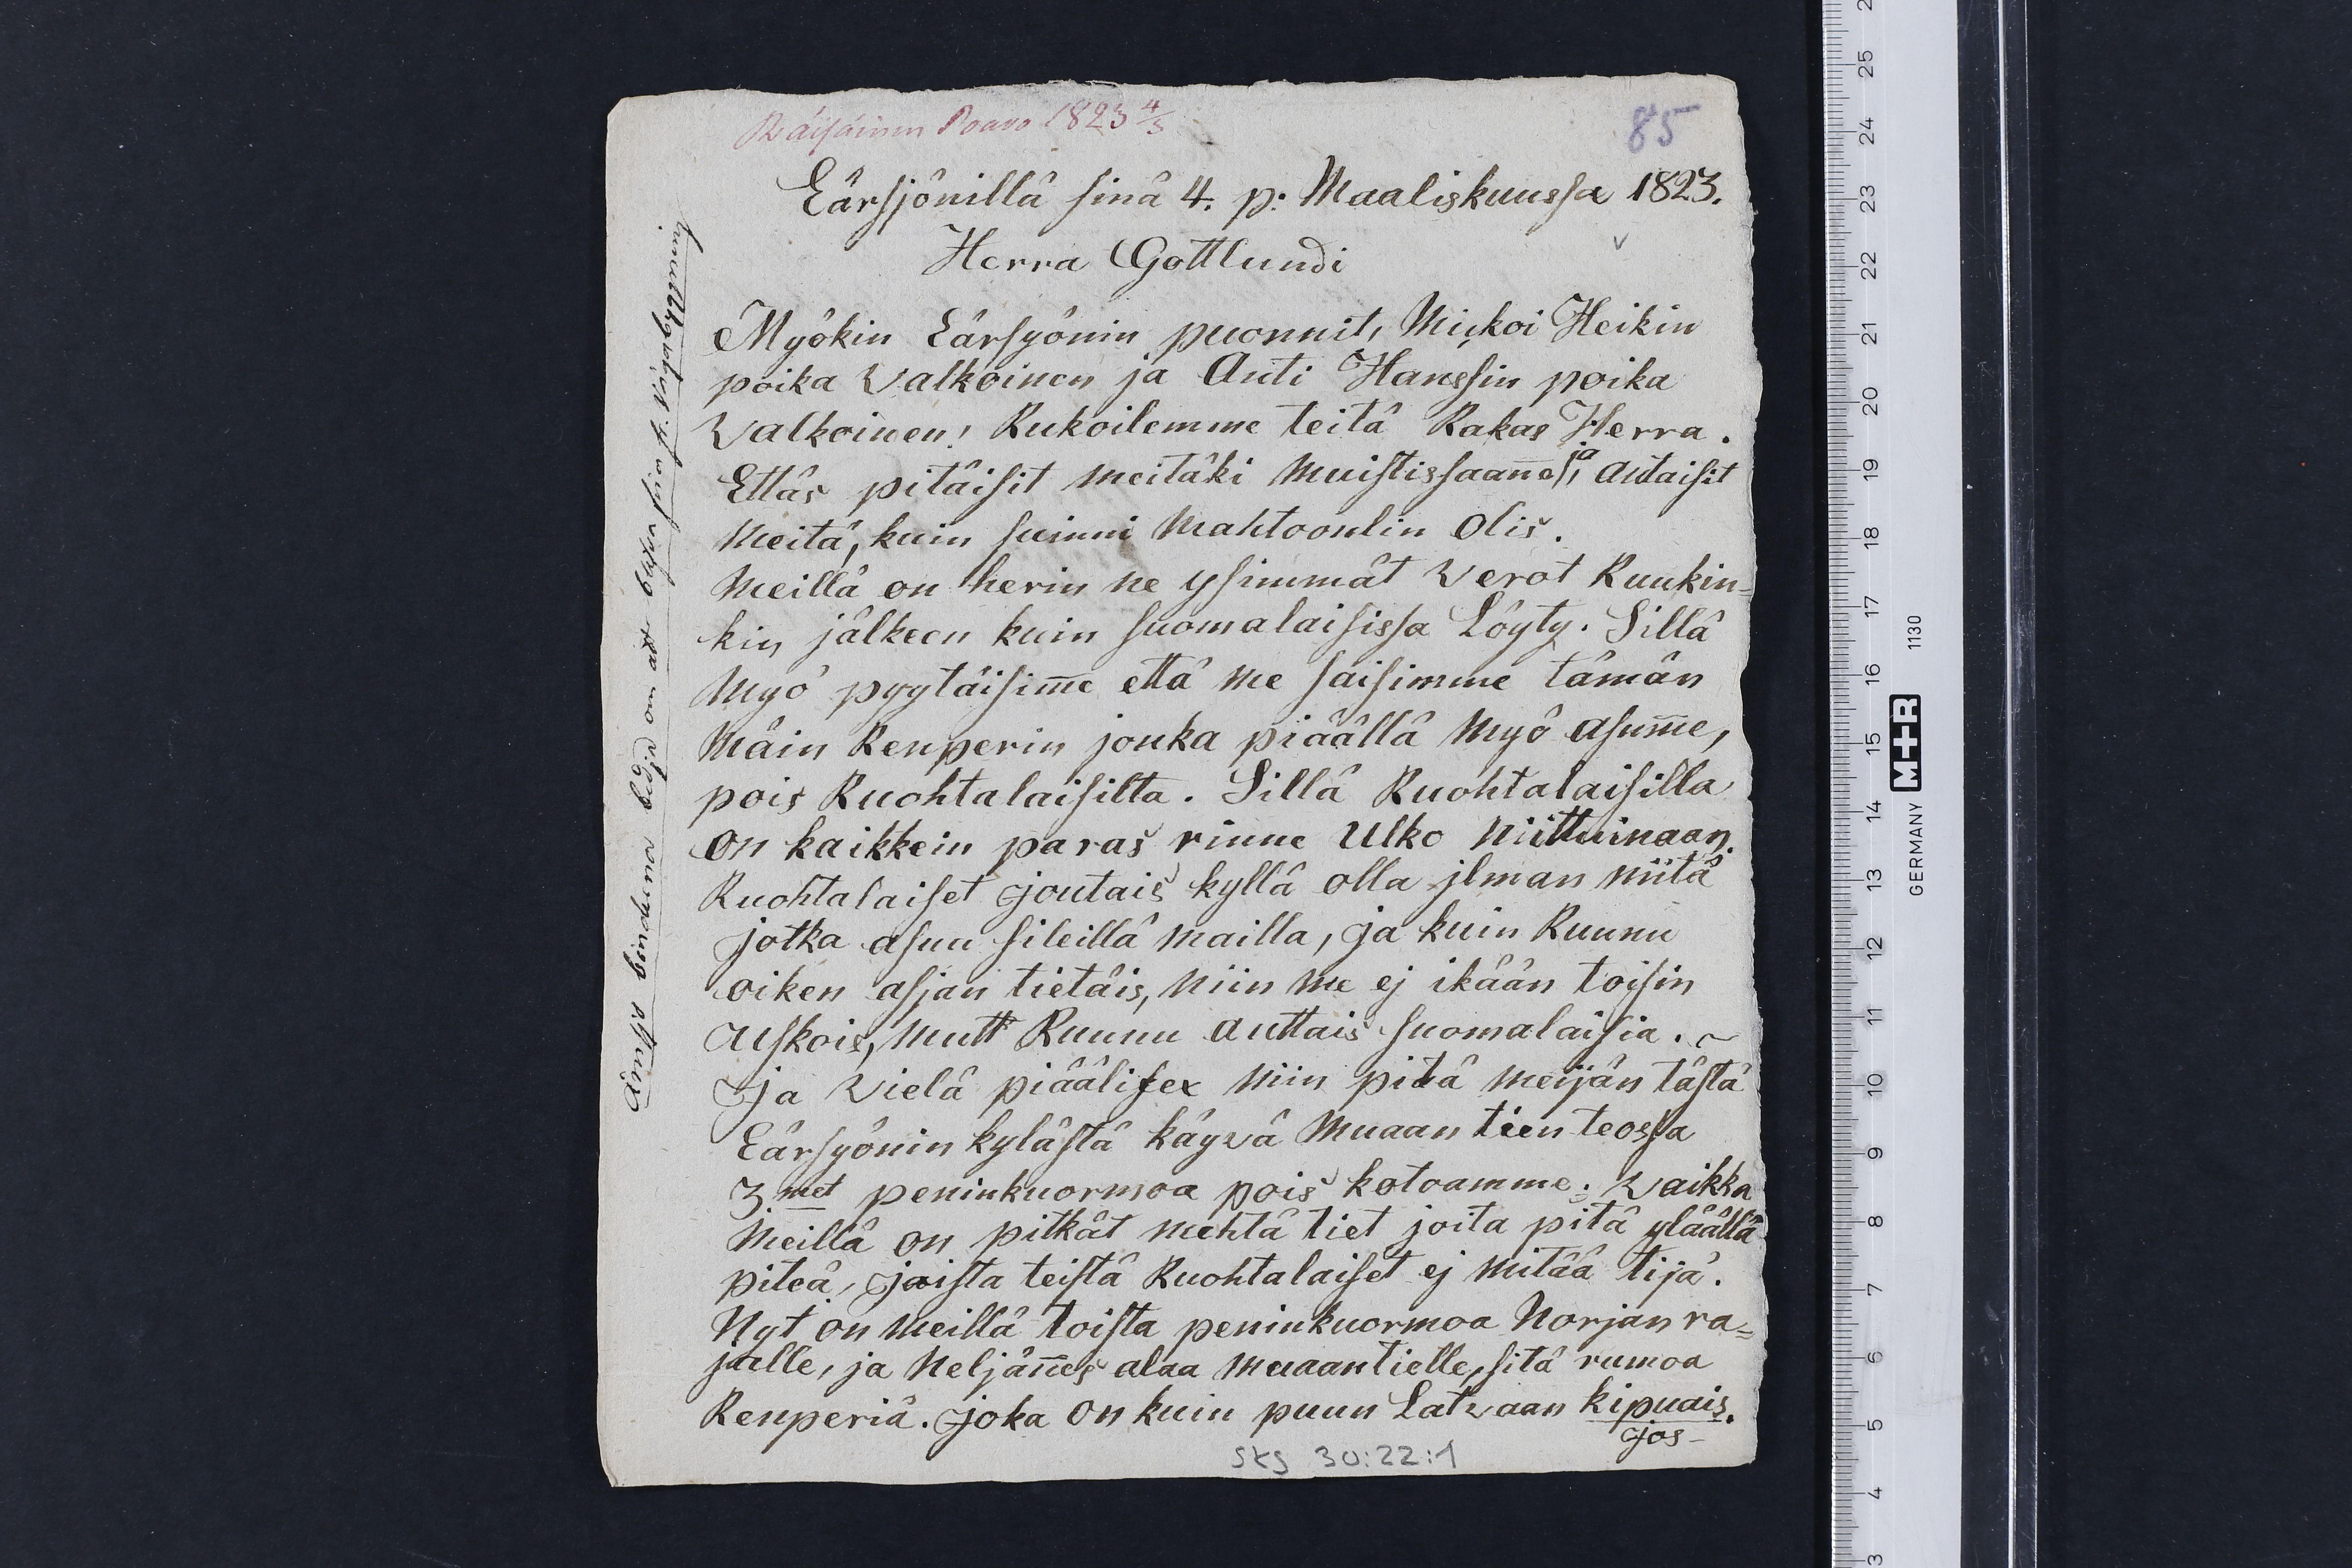 Räisäinen Poavo 1823 4/3
85
Eärsjönillä sinä 4. p: Maaliskuussa 1823.
Herra Gottlundi
Myökin Eärsyönin puonnit, Mickoi Heikin
poika Valkoinen ja Anti Hanssin poika
Valkoinen! Rukoilemme teitä Rakas Herra.
Ettäs pitäisit meitäki muistissaan̄es, ja autaisit
meitä, kuin suinni mahtoonlin olis.
meillä on herin ne ysimmät verot Ruukin-
kin jälkeen kuin suomalaisissa Löyty. Sillä
myö pyytäisim̄e että me saisimme tämän
mäin Renperin jonka piäällä myö asum̄e,
pois Ruohtalaisilta. Sillä Ruohtalaisilla
on kaikkein paras rinne Ulko niittuinaan.
Ruohtalaiset joutais kyllä olla jlman niitä
jotka asuu sileillä mailla, ja kuin Ruunu
oiken asjan tietäis, niin me ej ikään toisin
auskois, mutt Ruunu auttais suomalaisia. ~
Ja vielä piäälisex niin pitä meijän tästä
Eärsyönin kylästä käyvä muaan tien teossa
3.met peninkuormoa pois kotoamme; vaikka
meillä on pitkät mehtä tiet joita pitä yläällä
piteä, joista teistä Ruohtalaiset ej mitää tijä.
Nyt on meillä toista peninkuormoa Norjan ra=
jalle, ja neljän̄es alaa muaantielle, sitä rumoa
Renperiä. joka on kuin puun Latvaan kipuais.
jos-
SKS 30:22:1